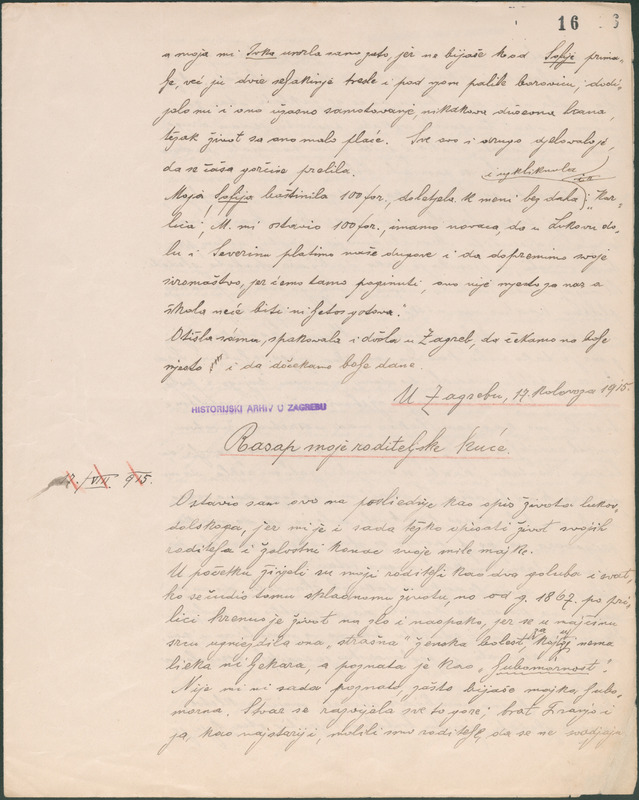 16
a moja mi Ivka umrla samo zato, jer ne bijaše kod Sofije prima-
lje, već ju dvie seljakinje trede i pod njom palile borovicu, dodi-
jalo mi i ono užasno samotovanje, nikakova duševna hrana,
težak život za ono malo plaće. Sve ovo i drugo djelovalo je,
da se čaša gorčine prelila.
i uzkliknula
Moja Sofija baštinila 100 for., doletjela k meni bez daha: "Kar-
lica, M. mi ostavio 100 for., imamo novaca, da u Lukovu do-
lu i Severinu platimo naše dugove i da dopremimo svoje
siromaštvo, jer ćemo tamo poginuti, ovo nije mjesto za nas a
škola neće biti ni ljetos gotova."
Otišla sama, spakovala i došla u Zagreb, da čekamo na bolje
mjesto i da dočekamo bolje dane.
U Zagrebu, 17. kolovoza 1915.
HISTORIJSKI ARHIV U ZAGREBU
Rasap moje roditeljske kuće.
7. VIII. 915.
Ostavio sam ovo na posljednje kao opis života lukov-
dolskoga, jer mi je i sada težko opisati život svojih
roditelja i žalostni konac svoje mile majke.
U početku živjeli su moji roditelji kao dva goluba i svat-
ko se čudio tomu skladnomu životu, no od g. 1867. po prí-
lici krenuo je život na zlo i naopako, jer se u majčinu
srcu ugnjezdila ona "strašna" ženska bolest, za kojoj nema
lieka ni ljekara, a poznata je kao "ljubomornost".
Nije mi ni sada poznato, zašto bijaše majka ljubo-
morna. Stvar se razvijala sve to gore; brat Franjo i
ja, kao najstariji, molili smo roditelje, da se ne svadjaju